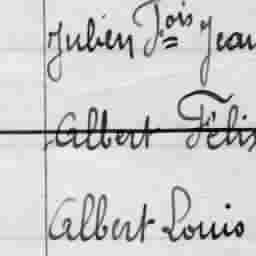 Julien Fois Jean
Albert Félix
Albert Louis